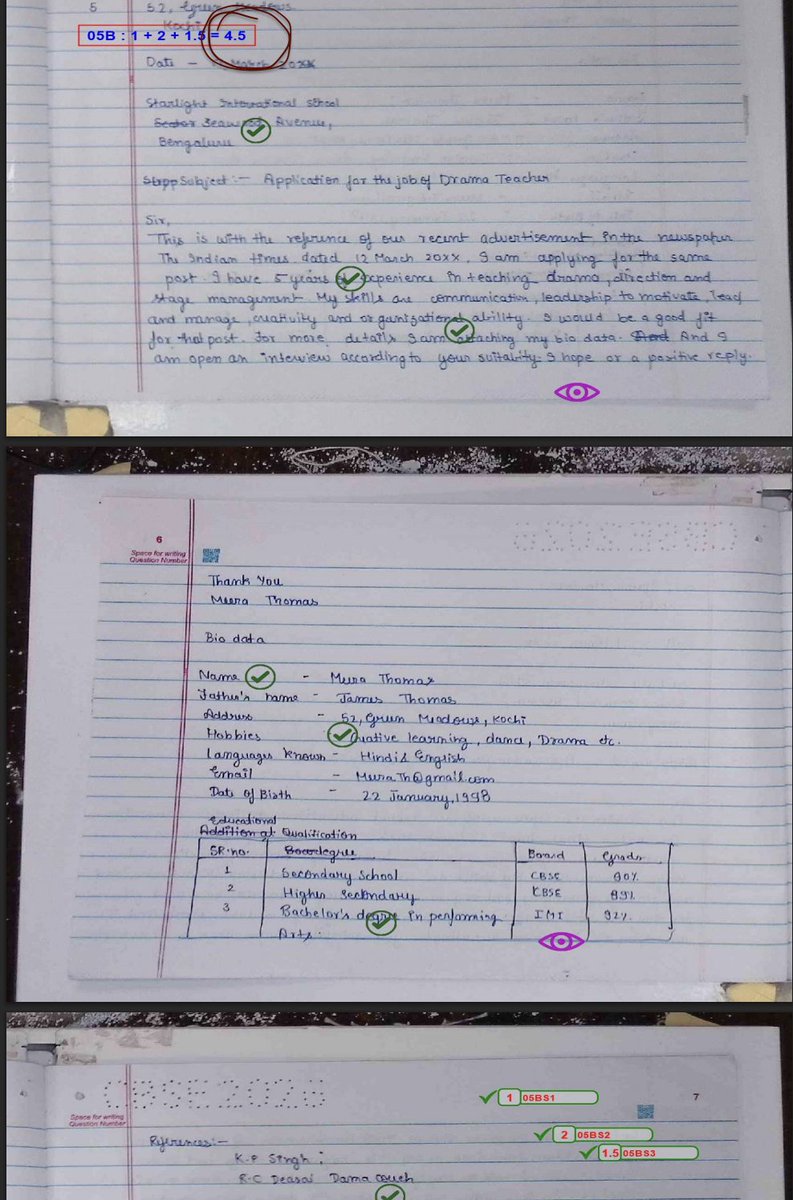 5 52, Green Meadows
Kochi
05B : 1 + 2 + 1.5 = 4.5
Date - March 20XX
Starlight International school
Sector Seawood Avenue,
Bengaluru
Subject :- Application for the job of Drama Teacher
Sir,
This is with the refrence of our recent advertisement in the newspaper
The Indian times dated 12 March 20XX. I am applying for the same
post. I have 5 years of experience in teaching drama, direction and
stage management. My skills are communication, leadership to motivate, Teach
and manage, creativity and organisational ability. I would be a good fit
for that post. For more details I am attaching my bio data. And I
am open an interview according to your suitability. I hope or a positive reply.
6
Space for writing
Question Number
Thank You
Meera Thomas
Bio data
Name - Meera Thomas
Father's name - James Thomas
Address - 52, Green Meadows, Kochi
Hobbies - Creative learning, dance, Drama etc.
Languages Known - Hindi & English
Email - MeeraTh@gmail.com
Date of Birth - 22 January, 1998
Educational
Additional Qualification
SR.no. degree Board Grade
1 Secondary School CBSE 90%
2 Higher Secondary CBSE 89%
3 Bachelor's degree in performing IMI 92%
Arts.
CBSE2026
Space for writing
Question Number
1 05BS1
7
2 05BS2
1.5 05BS3
References:-
K.P Singh :
R.C Deasai Dama couch